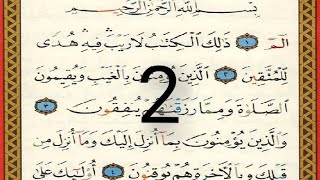 بِسْمِ اللَّهِ الرَّحْمَٰنِ الرَّحِيمِ
الٓمٓ ١ ذَٰلِكَ الْكِتَٰبُ لَا رَيْبَ فِيهِ هُدًى
لِّلْمُتَّقِينَ ٢ الَّذِينَ يُؤْمِنُونَ بِالْغَيْبِ وَيُقِيمُونَ
الصَّلَوٰةَ وَمِمَّا رَزَقْنَٰهُمْ يُنفِقُونَ ٣
2
وَالَّذِينَ يُؤْمِنُونَ بِمَا أُنزِلَ إِلَيْكَ وَمَا أُنزِلَ مِن
قَبْلِكَ وَبِالْآخِرَةِ هُمْ يُوقِنُونَ ٤ أُولَٰئِكَ عَلَىٰ